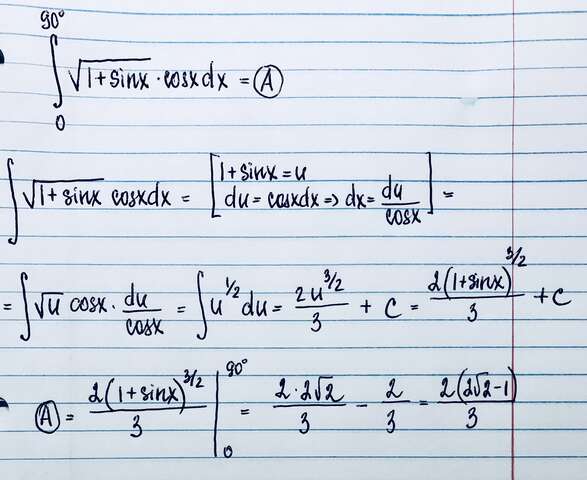 ∫₀^{90°} √(1+sinx) · cosxdx = Ⓐ
∫ √(1+sinx) cosxdx = [1+sinx = u
du = cosxdx ⇒ dx = du/cosx] =
= ∫ √u cosx · du/cosx = ∫ u^{1/2} du = 2u^{3/2}/3 + C = 2(1+sinx)^{3/2}/3 + C
Ⓐ = 2(1+sinx)^{3/2}/3 |₀^{90°} = 2·2√2/3 − 2/3 = 2(2√2−1)/3